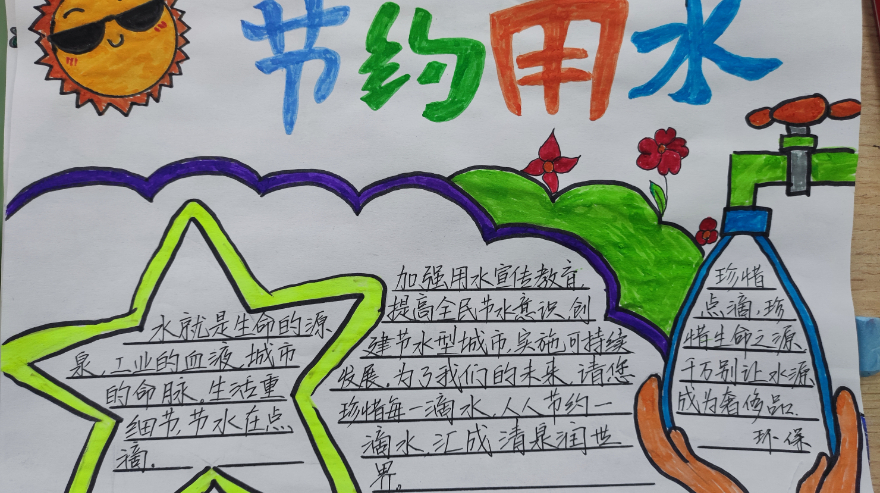 节约用水
水就是生命的源
泉,工业的血液,城市
的命脉。生活重
细节,节水在点
滴。
加强用水宣传教育
提高全民节水意识,创
建节水型城市,实施可持续
发展,为了我们的未来,请您
珍惜每一滴水,人人节约一
滴水,汇成清泉润世
界。
珍惜
点滴,珍
惜生命之源
千万别让水源
成为奢侈品.
环保